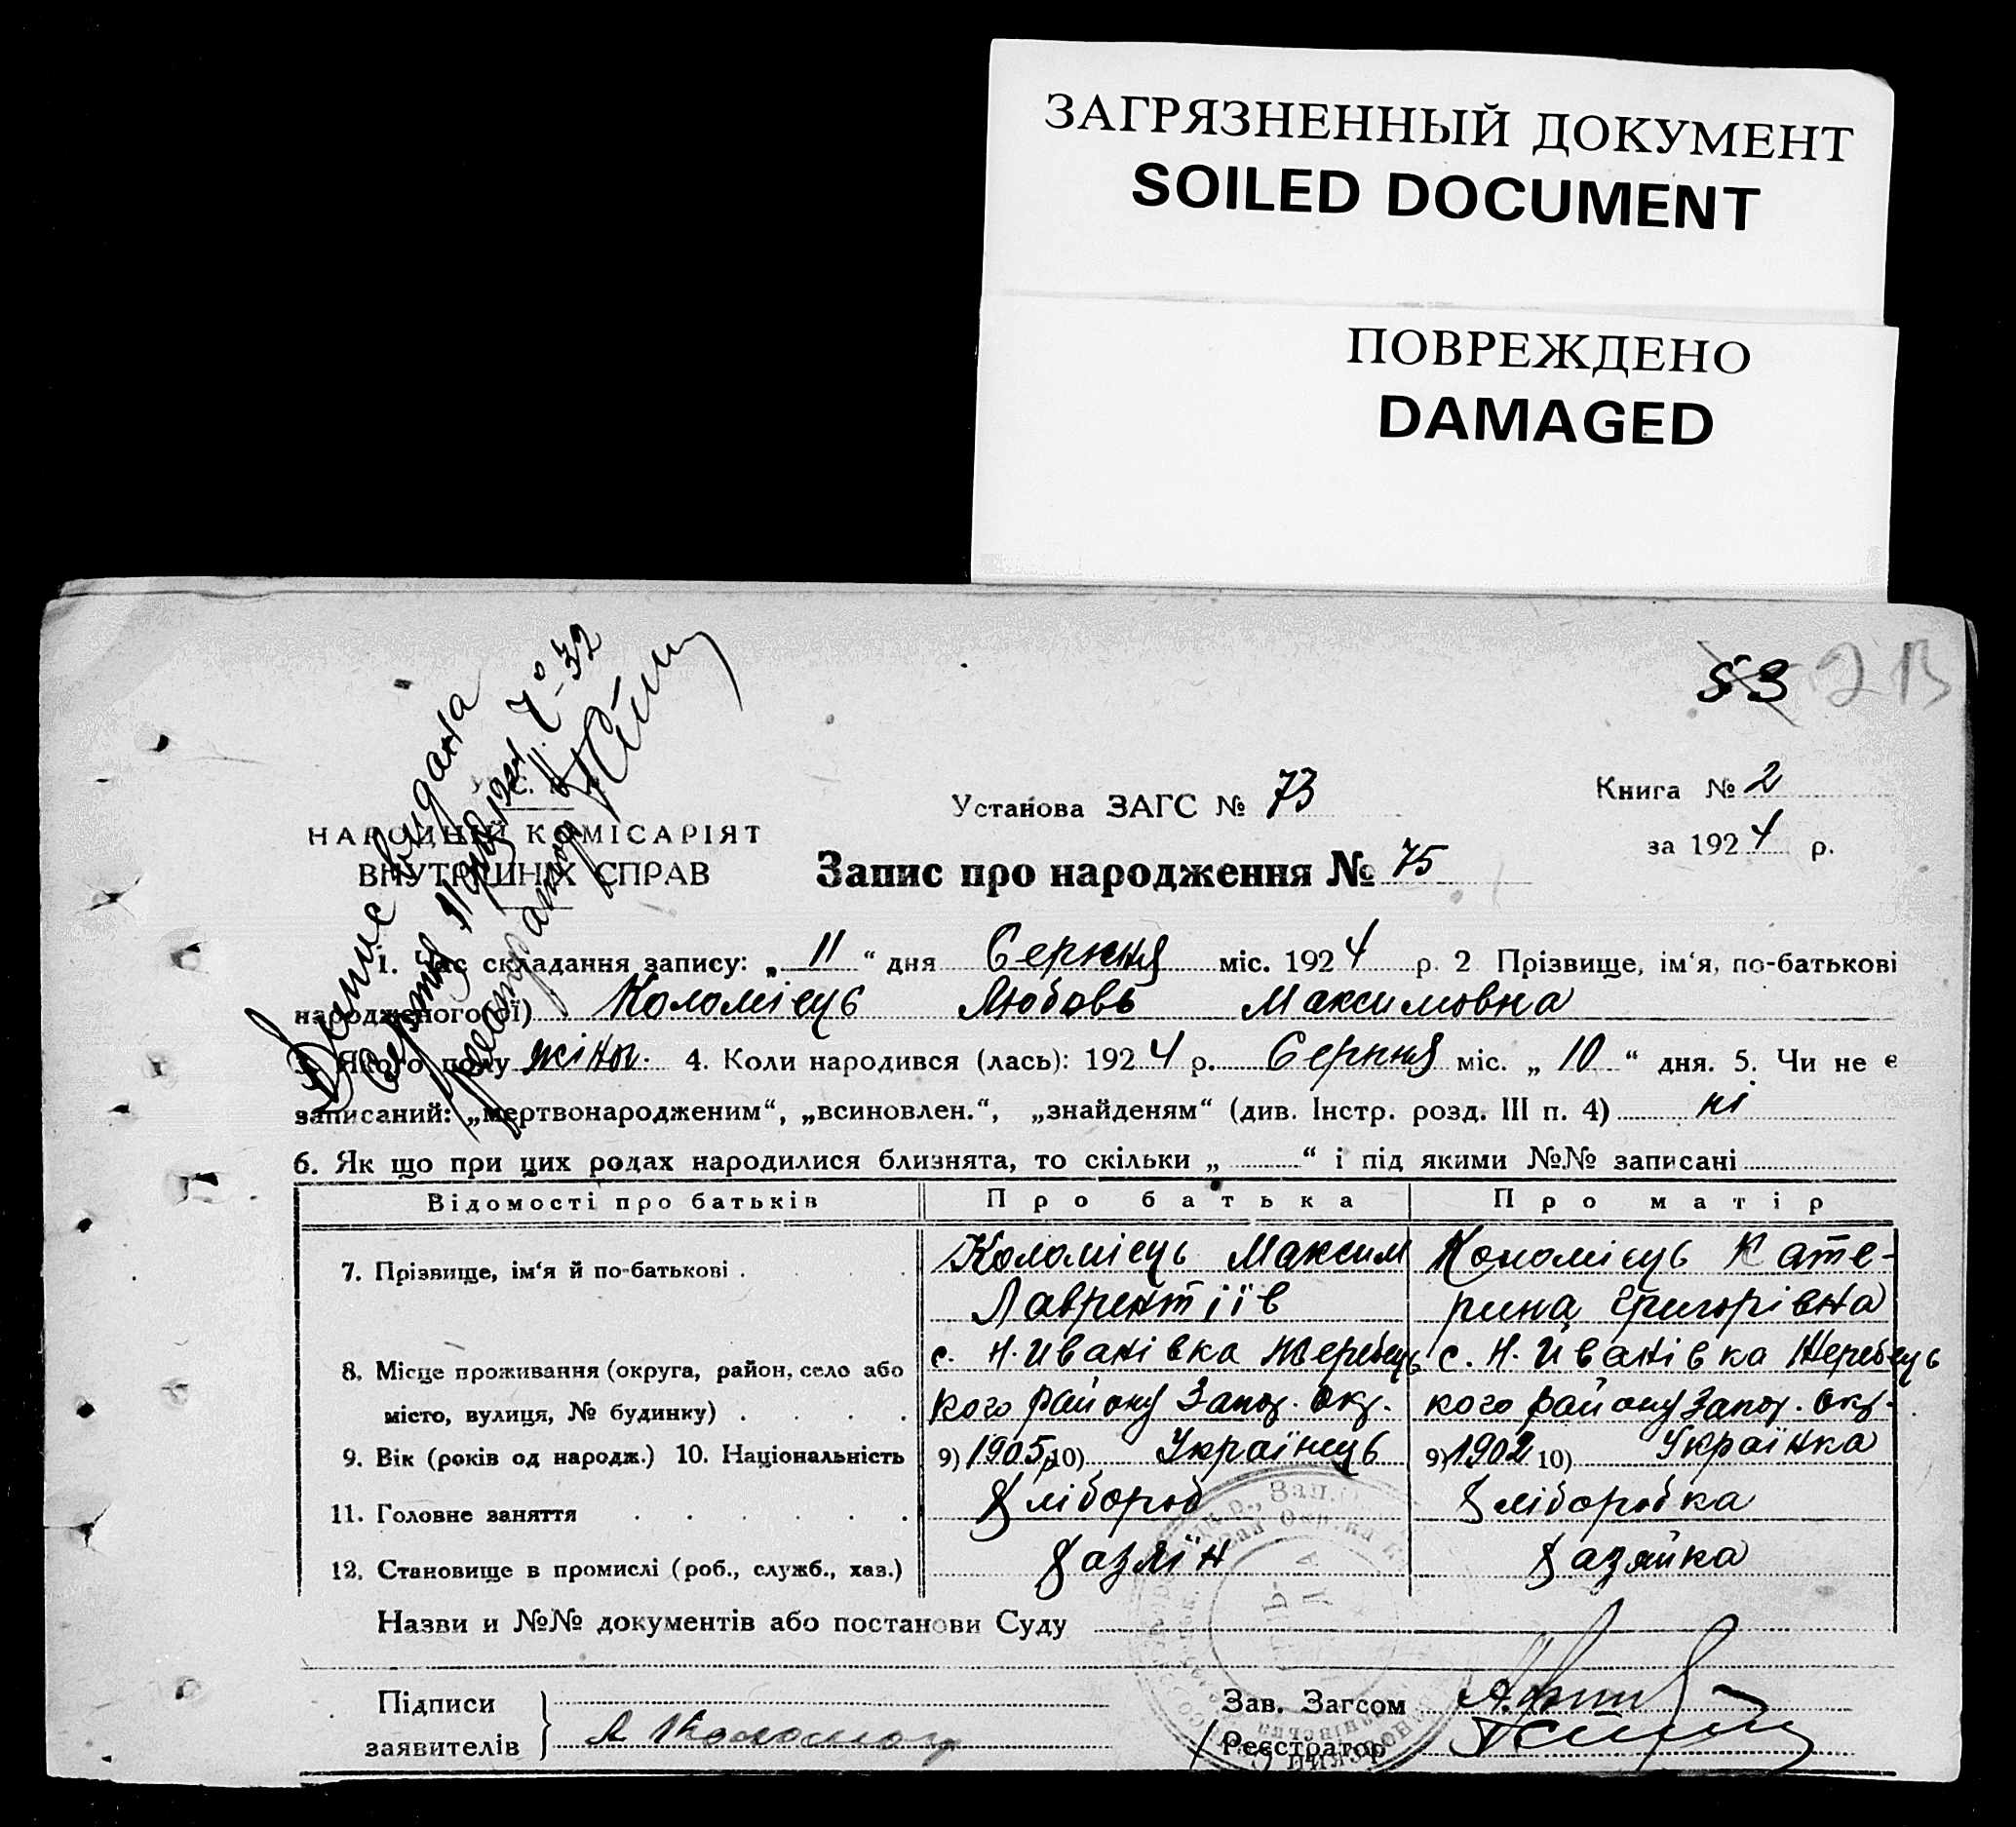 ЗАГРЯЗНЕННЫЙ ДОКУМЕНТ
SOILED DOCUMENT
ПОВРЕЖДЕНО
DAMAGED
53 2В
Випис видана
7-32
Книга № 2
Установа ЗАГС № 73
за 1924 р.
НАРОДНІЙ КОМІСАРІЯТ
ВНУТРІШНІХ СПРАВ
Запис про народження № 75
1. Час складання запису: „ 11 “ дня Серпня міс. 1924 р. 2 Прізвище, ім‘я, по-батькові
народженого(ої) Коломієць Любовь Максимовна
3. Якого полу жіноч. 4. Коли народився (лась): 1924 р. Серпня міс. „ 10 “ дня. 5. Чи не є
записаний: „мертвонародженим“, „всиновлен.“, „знайденям“ (див. Інстр. розд. III п. 4) ні
6. Як що при цих родах народилися близнята, то скільки „ “ і під якими №№ записані
Відомості про батьків Про батька Про матір
7. Прізвище, ім‘я й по-батькові . Коломієць Максим Коломієць Кате-
Лаврентіїв рина Григорівна
8. Місце проживання (округа, район, село або с. Н. Иванівка Жеребець с. Н. Иванівка Жеребець
місто, вулиця, № будинку) . кого району Запор. Окр. кого району Запор. Окр.
9. Вік (років од народж.) 10. Національність 9) 1905 р 10) Українець 9) 1902 10) Українка
11. Головне заняття Хлібороб Хліборобка
12. Становище в промислі (роб., служб., хаз.) Хазяїн Хазяйка
Назви и №№ документів або постанови Суду
Підписи Зав. Загсом
заявителів Реєстратор